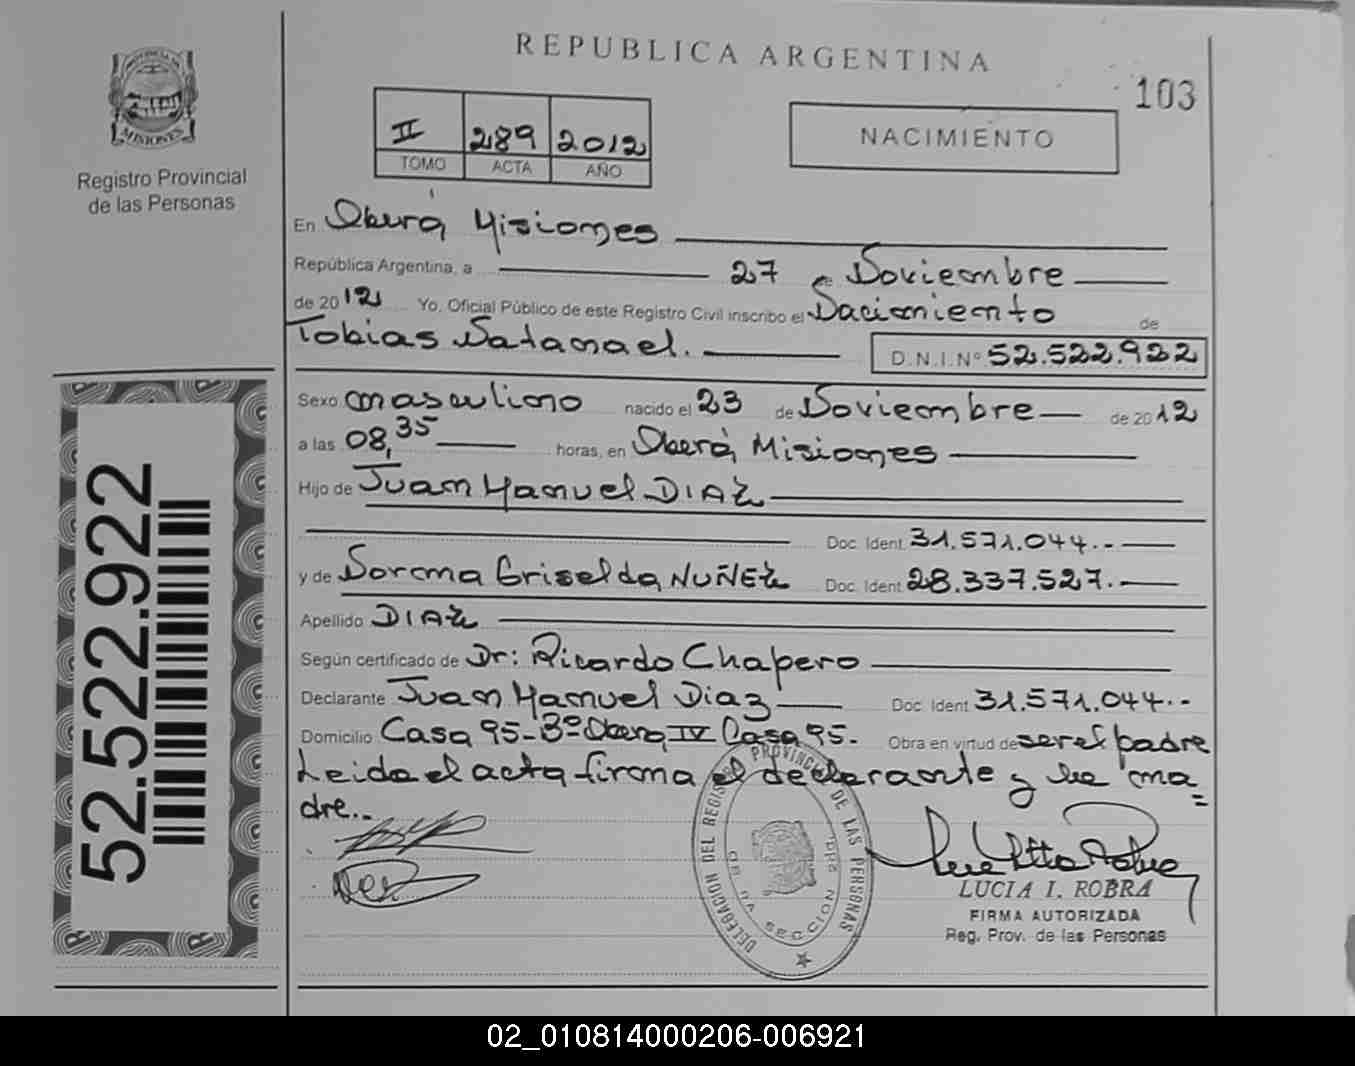 REPUBLICA ARGENTINA
103
MISIONES
Registro Provincial
de las Personas
II 289 2012
TOMO ACTA AÑO
NACIMIENTO
En Oberá Misiones
República Argentina, a 27 de Noviembre
de 2012 Yo, Oficial Público de este Registro Civil inscribo el Nacimiento de
Tobias Natanael. D.N.I.Nº 52.522.922
Sexo masculino nacido el 23 de Noviembre de 2012
a las 08,35 horas, en Oberá Misiones
Hijo de Juan Manuel DIAZ
Doc. Ident. 31.571.044.-
y de Norma Griselda NUÑEZ Doc. Ident. 28.337.527.-
Apellido DIAZ
Según certificado de Dr: Ricardo Chapero
Declarante Juan Manuel Diaz Doc. Ident. 31.571.044.-
Domicilio Casa 95-Bº Obera IV Casa 95.- Obra en virtud de ser el padre
Leida el acta firma el declarante y la ma=
dre.-
DELEGACION DEL REGISTRO PROVINCIAL DE LAS PERSONAS
SECCION
LUCIA I. ROBRA
FIRMA AUTORIZADA
Reg. Prov. de las Personas
52.522.922
02_010814000206-006921